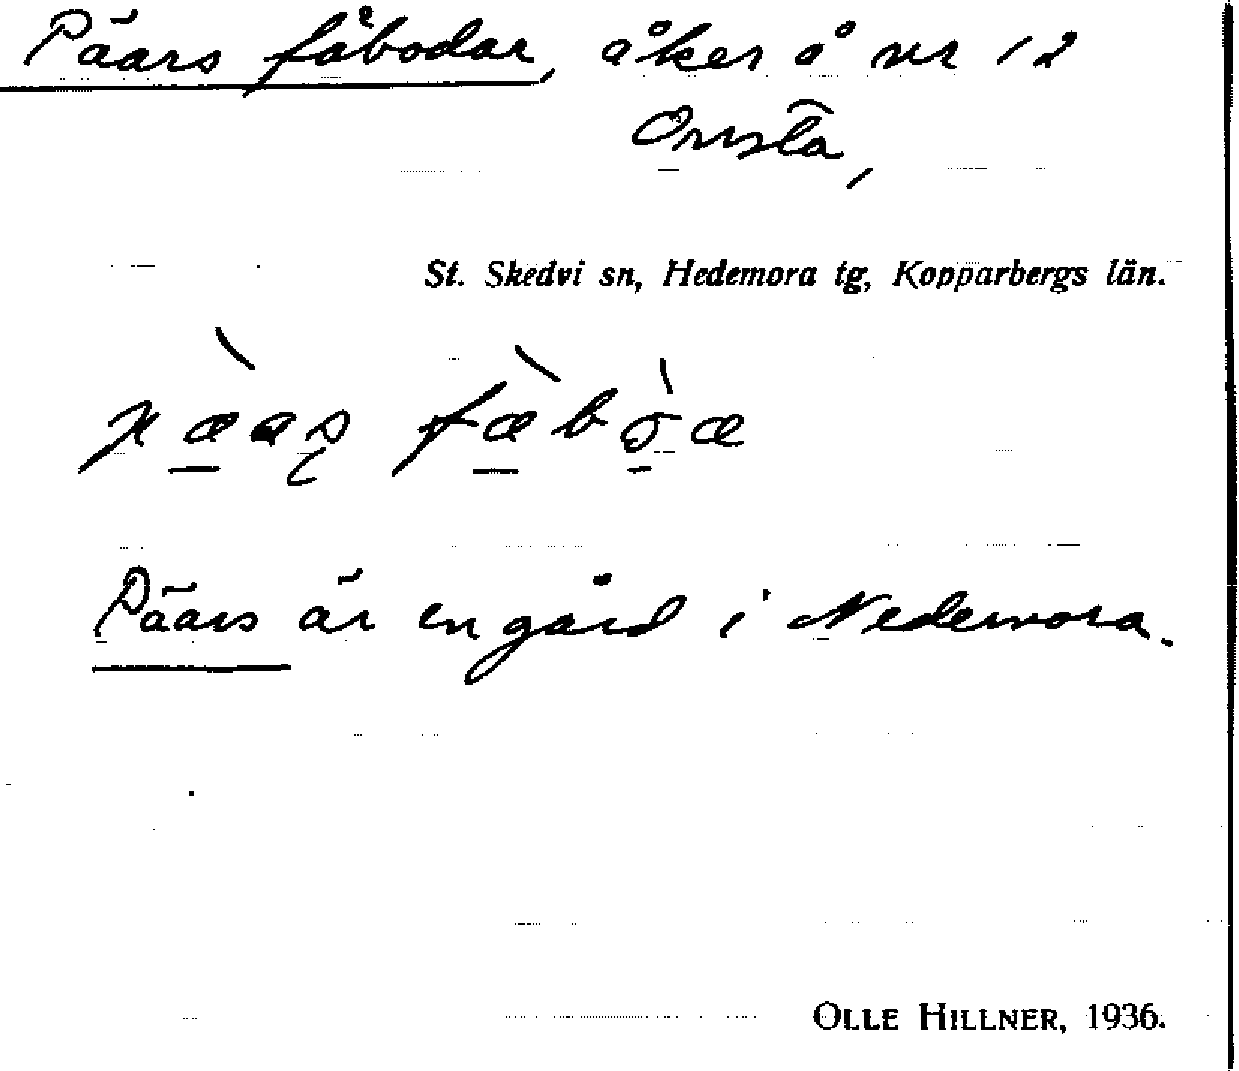 Päars fäbodar, åker å nr 12
Onsta,
St. Skedvi sn, Hedemora tg, Kopparbergs län.
Päars är en gård i Nedernora.
OLLE HILLNER, 1936.